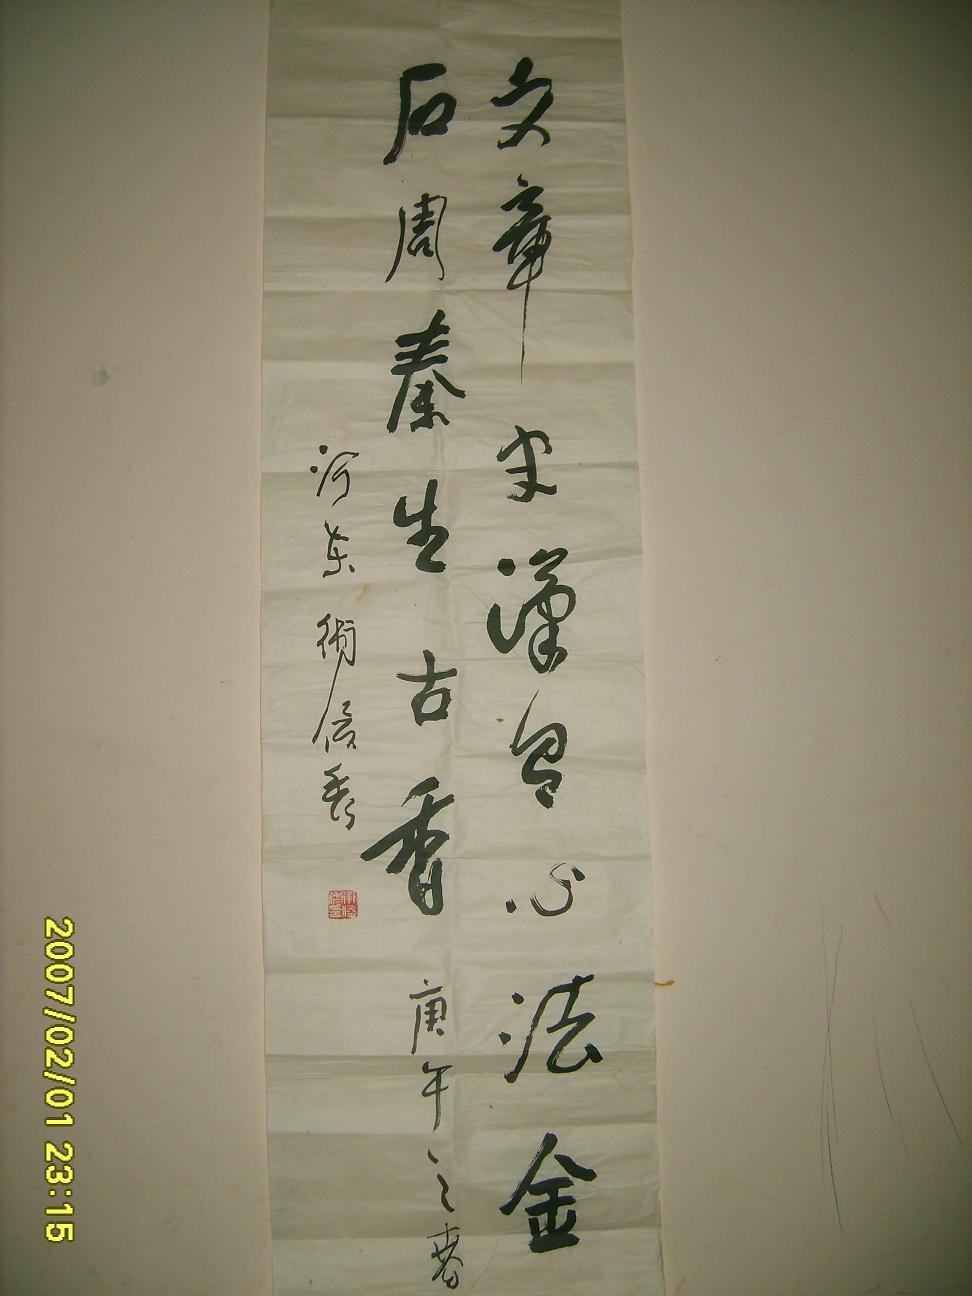 文章宋漢留心法金
石周秦生古香 庚午之春
河東衛俊秀
2007/02/01 23:15